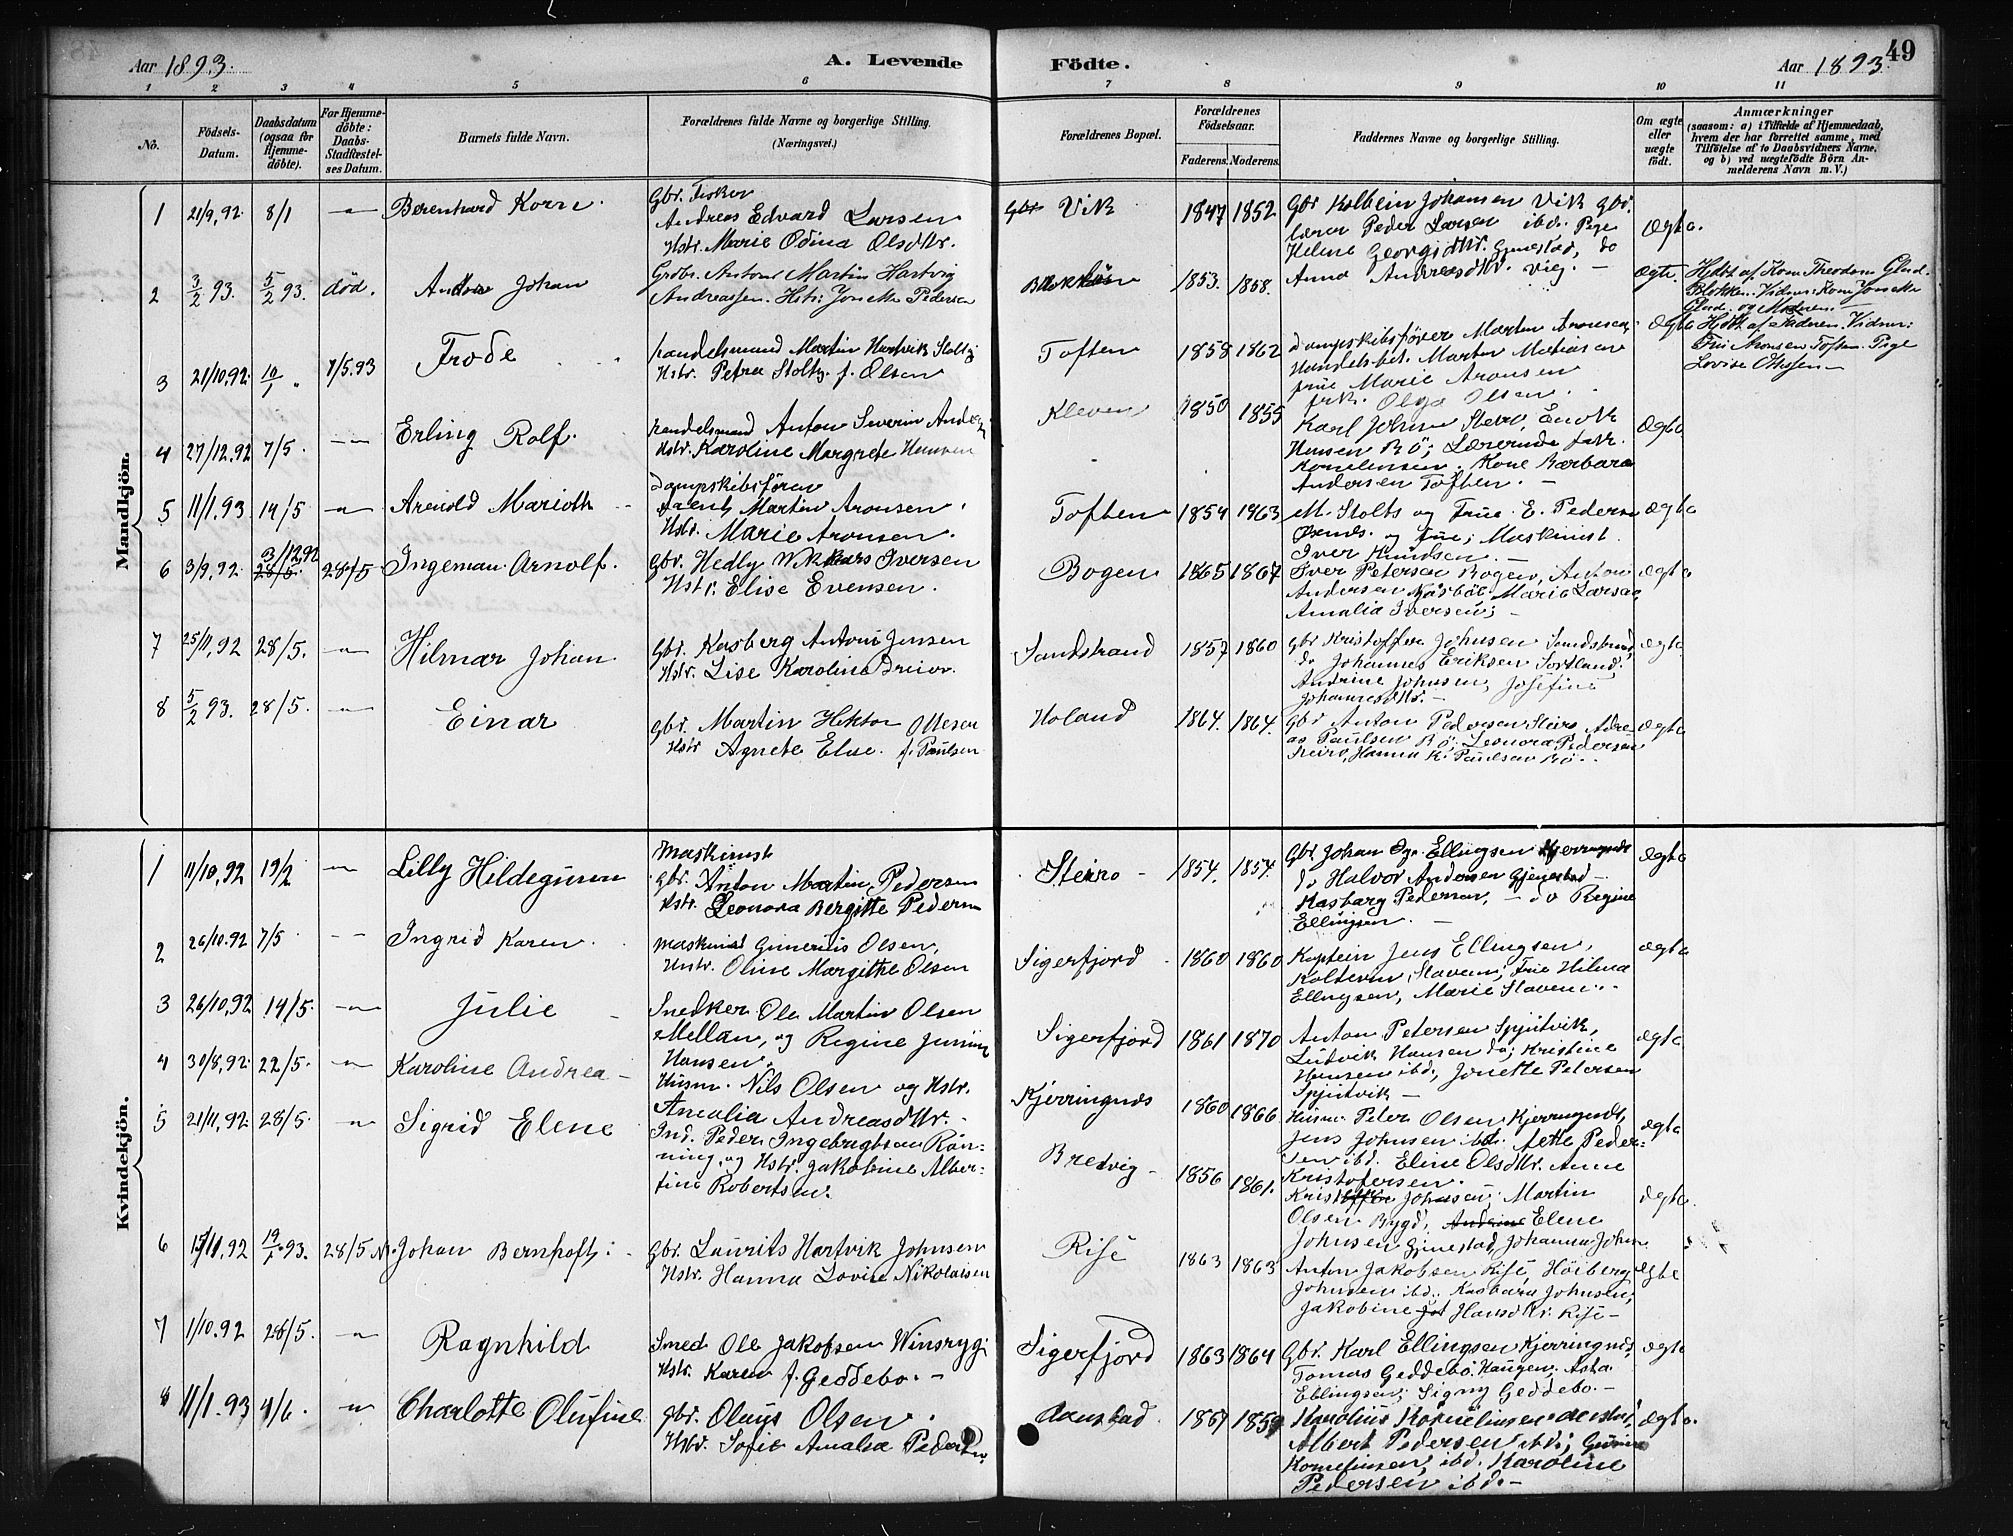 48
Aar 1893.
A. Levende
Födte.
Aar 1893.
49
1 2 3 4 5 6 7 8 9 10 11
No.
Födsels-Datum.
Daabsdatum (ogsaa for Hjemmedöbte).
For Hjemmedöbte: Daabs-Stadfæstelses Datum.
Barnets fulde Navn.
Forældrenes fulde Navne og borgerlige Stilling. (Næringsvei.)
Forældrenes Bopæl.
Forældrenes Födselsaar.
Faderens. Moderens.
Faddernes Navne og borgerlige Stilling.
Om ægte eller uægte födt.
Anmærkninger
(saasom: a) i Tilfælde af Hjemmedaab, hvem der har forrettet samme, med Tilföielse af to Daabsvidners Navne, og b) ved uægtefödte Börn Anmelderens Navn m. V.)
Mandkjön.
1 21/9, 92. 8/1 —"— Berenhard Korn.
Gbr. Fisker
Andreas Edvard Larsen
Hstr. Marie Odina Olsdttr.
Vik 1847 1852
Gbr Kolbein Johansen Vik gbr.
lærer Peder Larsen ibd. Pige
Helene Georgsdttr. Gjenestad, do
Anna Andreasdttr. Vig. —
Ægte.
2 3/2 93. 5/2 93. död. Johan
Grdbr. Antone Martin Hartvig
Andreassen. Hstr: Jonette Pedersen
1853. 1858.
Ægte. Hdbt af Kone Theodora Glad
Blokken. Vidner: Kone Jonette
Glad. og Moderen.
3 21/10.92. 10/1 " 7/5.93 Frode
Handelsmand Martin Hartvik Stoltz
Hstr. Petra Stoltz. f. Olsen
Toften 1858 1862
Dampskibsförer Martin Aronsen,
Handelsbet. Martin Matiasen
frue Marie Aronsen
frk. Olga Olsen.
Ægte Hdbt af Faderen. Vidner:
Fru Aronsen Toften. Pige
Lovise Ottesen —
4 27/12.92 7/5. —"— Erling Rolf.
Handelsmand Anton Severin Anders
Hstr. Karoline Margrete Hansen
Kleven 1850 1855
Karl Johnsen Steiro, Enok
Hansen Bö; Lærerinde frk.
Kornelensen. Kone Barbara
Andersen Toften. —
Ægte
5 11/1.93 14/5 —"— Arnold Marioth
Dampskibsförer
Arent Martin Aronsen.
Hstr. Marie Aronsen.
Toften 1854 1863
M. Stolts og Frue. E. Pedersen
og frue; Maskinist
Iver Knudsen. —
Ægte
6 3/9, 92. 3/12 92 28/5. 28/5 Ingeman Arnolf.
Gbr. Hedly Iversen
Hstr. Elise Evensen.
Bogen 1865 1867
Iver Petersen Bogen, Anton
Andersen Marie Larsen,
Amalia Iversen; —
Ægte
7 25/11, 92 28/5. —"— Hilmar Johan
Gbr. Kasberg Antoni Jensen
Hstr. Lise Karoline Dreior.
Sandstrand 1857 1860
Gbr Kristoffer Johnsen Sandstrand,
do Johannes Eriksen Sortland.
Andrine Johnsen, Josefine
Johannesdttr. —
Ægte
8 5/2 93. 28/5. —"— Einar
Gbr. Martin Hektor Ottesen
Hstr Agnete Else. f. Paulsen
Holand 1864. 1864.
Gbr Anton Pedersen Steiro Andre-
as Paulsen Bö; Leonora Pedersen
Steiro, Hanna K. Paulsen Bö..
Ægte
Kvindekjön.
1 11/10, 92 19/2 —"— Lilly Hildegunn
Maskinist
Gbr. Anton Martin Pedersen
Hstr. Leonora Bergitte Pedersen
Steiro — 1854. 1854.
Gbr Johan Ellingsen Kjerringnæs
do Halvor Andersen Gjenestad —
Kasbarg Pedersen, — do Regine
Ellingsen. —
Ægte
2 26/10.92 7/5 —"— Ingrid Karen.
Maskinist Ginerius Olsen,
Hustr. Oline Margitte Olsen
Sigerfjord. 1860 1860
Kaptein Jens Ellingsen,
Kolteren, Slaveni; Frue Hilma
Ellingsen, Marie Slaveni..
Ægte
3 26/10,92 14/5. —"— Julie
Snedker Ole Martin Olsen
Mellan, og Regine
Hansen.
Sigerfjord 1861 1870
Anton Petersen Spjutvik,
Ludvik Hansen do; Kristine
Hansen ibd., Jonette Petersen
Spjutvik —
Ægte
4 30/8,92. 22/5. —"— Karoline Andrea —
Husm. Nils Olsen og Hstr.
Amalia Andreasdttr. —
Kjerringnæs 1860 1866.
Husm. Peter Olsen Kjerringnæs,
Jens Johnsen ibd. Aette Peder-
sen ibd. Eline Olsdttr. Anne
Kristofersen.
Ægte
5 21/11, 92. 28/5. —"— Sigrid Elene
Ind. Peder Ingebrigtsen Rön-
ning, og Hstr. Jakobine Alber-
tine Robertsen.
Bredvig — 1856 1861.
Kristoffer Johnsen; Martin
Olsen Bygd, Andrine Elene
Johnsen Gjenestad, Johanna Johns
Ægte
6 15/11, 92 19/2 93. 28/5 N. Johan Bernhoft:
Gbr. Laurits Hartvik Johnsen
Hstr. Hanna Lovise Nikolaisen
Risé 1863 1863
Anton Jakobsen Risé, Höiberg
Johnsen ibd.. Kasbara Johnsen;
Jakobine Hansdttr. Risé —
Ægte
7 1/10.92 28/5. —"— Ragnhild
Smed Ole Jakobsen Winsryg
Hstr. Karen f. Geddebo. —
Sigerfjord 1863 1864
Gbr. Karl Ellingsen Kjerringnæs,
Tomas Geddebö. Haugen, Asta
Ellingsen; Signy Geddebo. —
Ægte
8 11/1. 93 4/6. —"— Charlotte Olufine
Gbr. Olaus Olsen.
Hstr. Sofie Amalia Pedersen
1861 1859
Karolius Kornelinsen
Albert Pedersen ibd; Gurine
Kornelinsen, ibd. Karoline
Pedersen ibd. —
Ægte.